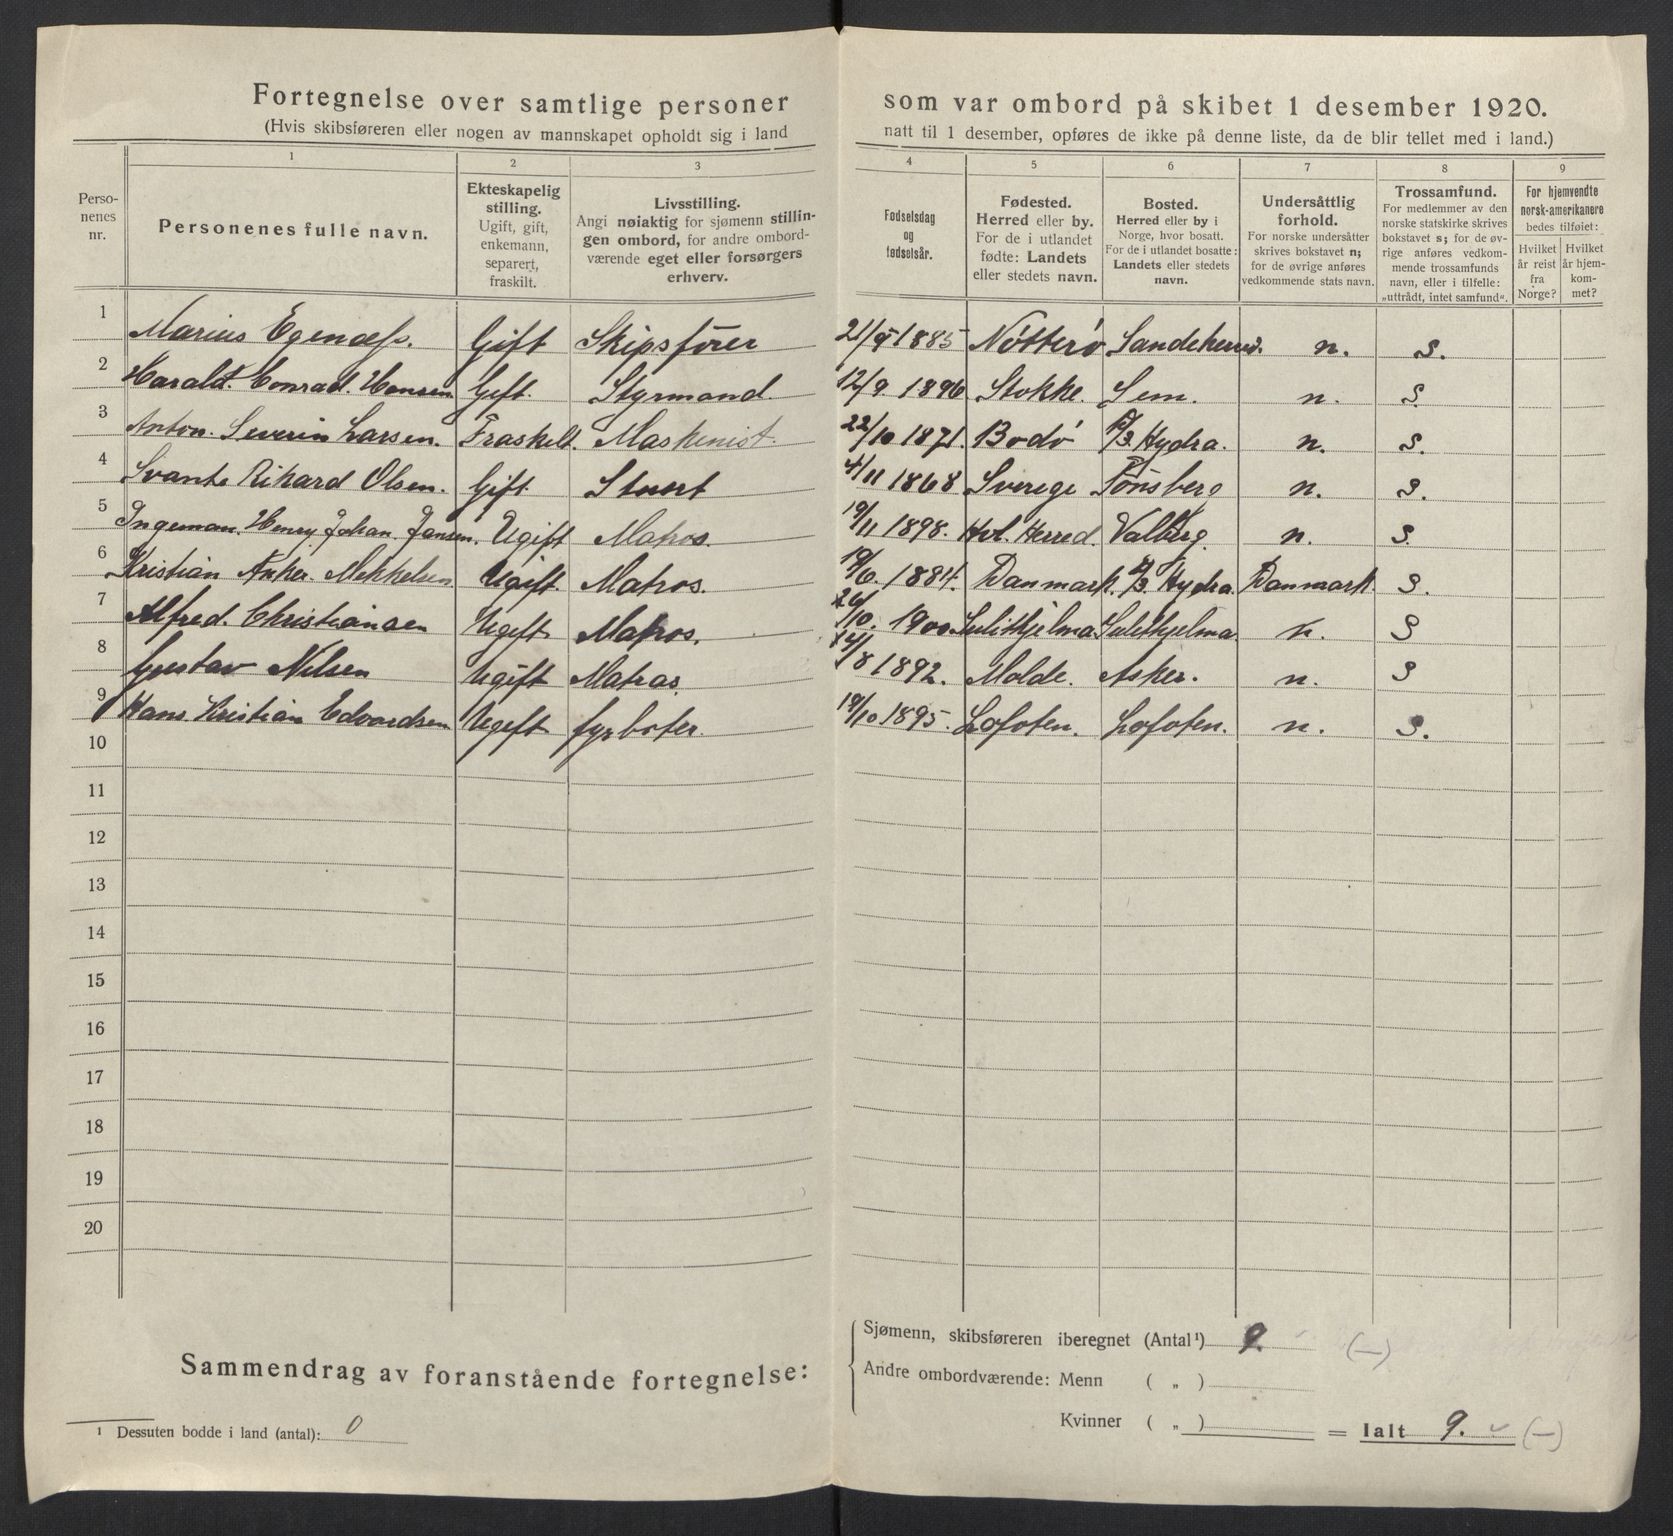 Fortegnelse over samtlige personer som var ombord på skibet 1 desember 1920.
(Hvis skibsføreren eller nogen av mannskapet opholdt sig i land natt til 1 desember, opføres de ikke på denne liste, da de blir tellet med i land.)
Perso-
nenes
nr.
1
Personenes fulle navn.
2
Ekteskapelig
stilling.
Ugift, gift,
enkemann,
separert,
fraskilt.
3
Livsstilling.
Angi nøiaktig for sjømenn stillin-
gen ombord, for andre ombord-
værende eget eller forsørgers
erhverv.
4
Fødselsdag
og
fødselsår.
5
Fødested.
Herred eller by.
For de i utlandet
fødte: Landets
eller stedets navn.
6
Bosted.
Herred eller by i
Norge, hvor bosatt.
For de i utlandet bosatte:
Landets eller stedets
navn.
7
Undersåttlig
forhold.
For norske undersåtter
skrives bokstavet n;
for de øvrige anføres
vedkommende stats navn.
8
Trossamfund.
For medlemmer av den
norske statskirke skrives
bokstavet s; for de øv-
rige anføres vedkom-
mende trossamfunds
navn, eller i tilfelle:
„uttrådt, intet samfund“.
9
For hjemvendte
norsk-amerikanere
bedes tilføiet:
Hvilket
år reist
fra
Norge?
Hvilket
år hjem-
kom-
met?
1 Marius Egenæss. Gift Skipsfører 21/5 1885 Nötterö Sandeherred. n. S.
2 Harald. Conrad. Hansen Gift. Styrmand. 12/9. 1896 Stokke. Sem. n. S.
3 Anton. Severin Larsen. Fraskilt. Maskinist. 22/10 1871. Bodö D/S. Hydra. n. S.
4 Svante Rikard Olsen. Gift. Stuert 4/11 1868 Sverige Tönsberg n. S.
5 Ingeman. Henry Johan. Jansen. Ugift Matros. 19/11 1898. Hol. Herred. Valberg. n. S.
6 Kristian Anker. Mekkelsen. Ugift. Matros. 19/6. 1884. Danmark. D/S. Hydra. Danmark. S.
7 Alfred. Christiansen Ugift Matros. 26/10. 1900 Sulithjelma Sulithjelma. n. S
8 Gustav Nilsen Ugift Matros. 14/8 1892. Molde. Asker. n. S
9 Hans Kristian Edvardsen Ugift fyrböter. 18/10 1895. Lofoten. Lofoten. n. S.
10
11
12
13
14
15
16
17
18
19
20
Sammendrag av foranstående fortegnelse:
Sjømenn, skibsføreren iberegnet (Antal¹) 9. (—)
Andre ombordværende: Menn ( „ )
Kvinner ( „ ) = Ialt 9. (—)
¹ Dessuten bodde i land (antal): 0